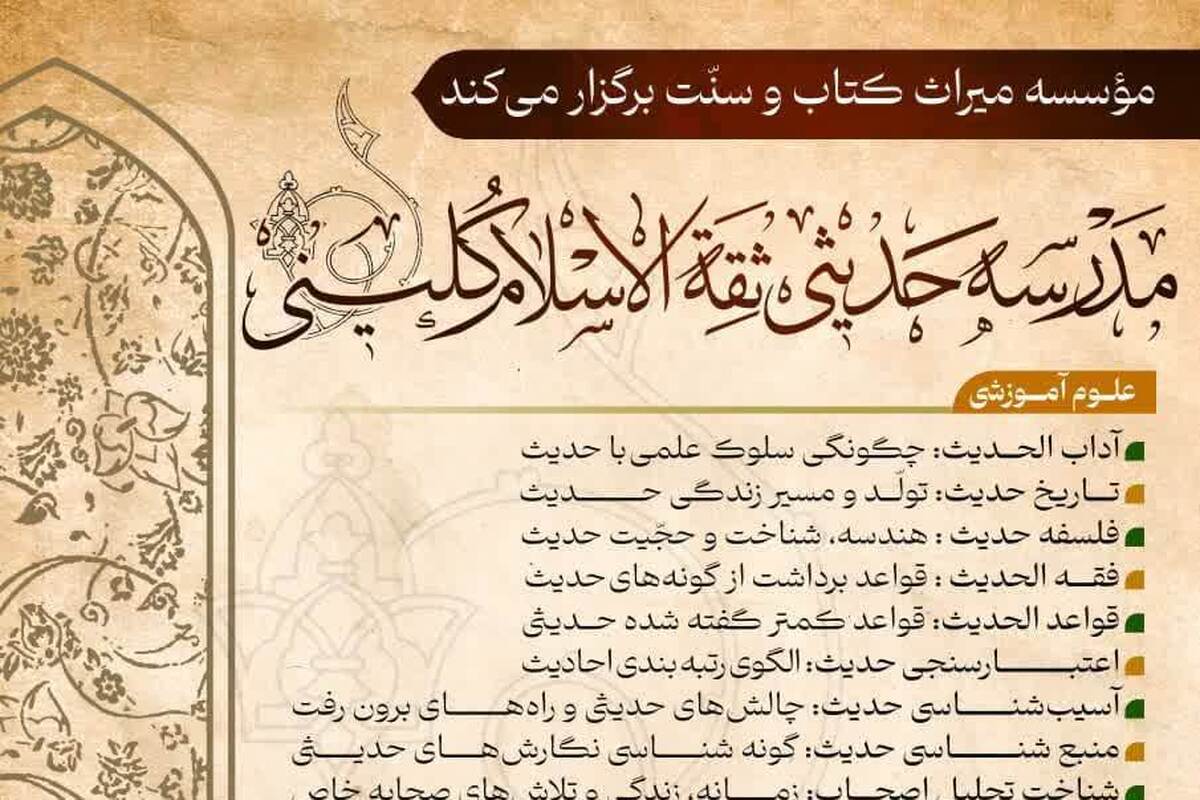 مؤسسه میراث کتاب و سنّت برگزار می‌کند
مَدْرسه حَدیثی ثقةِ الاسْلام کُلینی
علوم آموزشی
آداب الحدیث: چگونگی سلوک علمی با حدیث
تاریخ حدیث: تولّد و مسیر زندگی حدیث
فلسفه حدیث : هندسه، شناخت و حجّیت حدیث
فقه الحدیث : قواعد برداشت از گونه‌های حدیث
قواعد الحدیث: قواعد کمتر گفته شده حدیثی
اعتبارسنجی حدیث: الگوی رتبه‌بندی احادیث
آسیب‌شناسی حدیث: چالش‌های حدیثی و راه‌های برون رفت
منبع شناسی حدیث: گونه شناسی نگارش‌های حدیثی
شناخت تحلیل اصحاب: زمانه، زندگی و تلاش‌های صحابه خاص